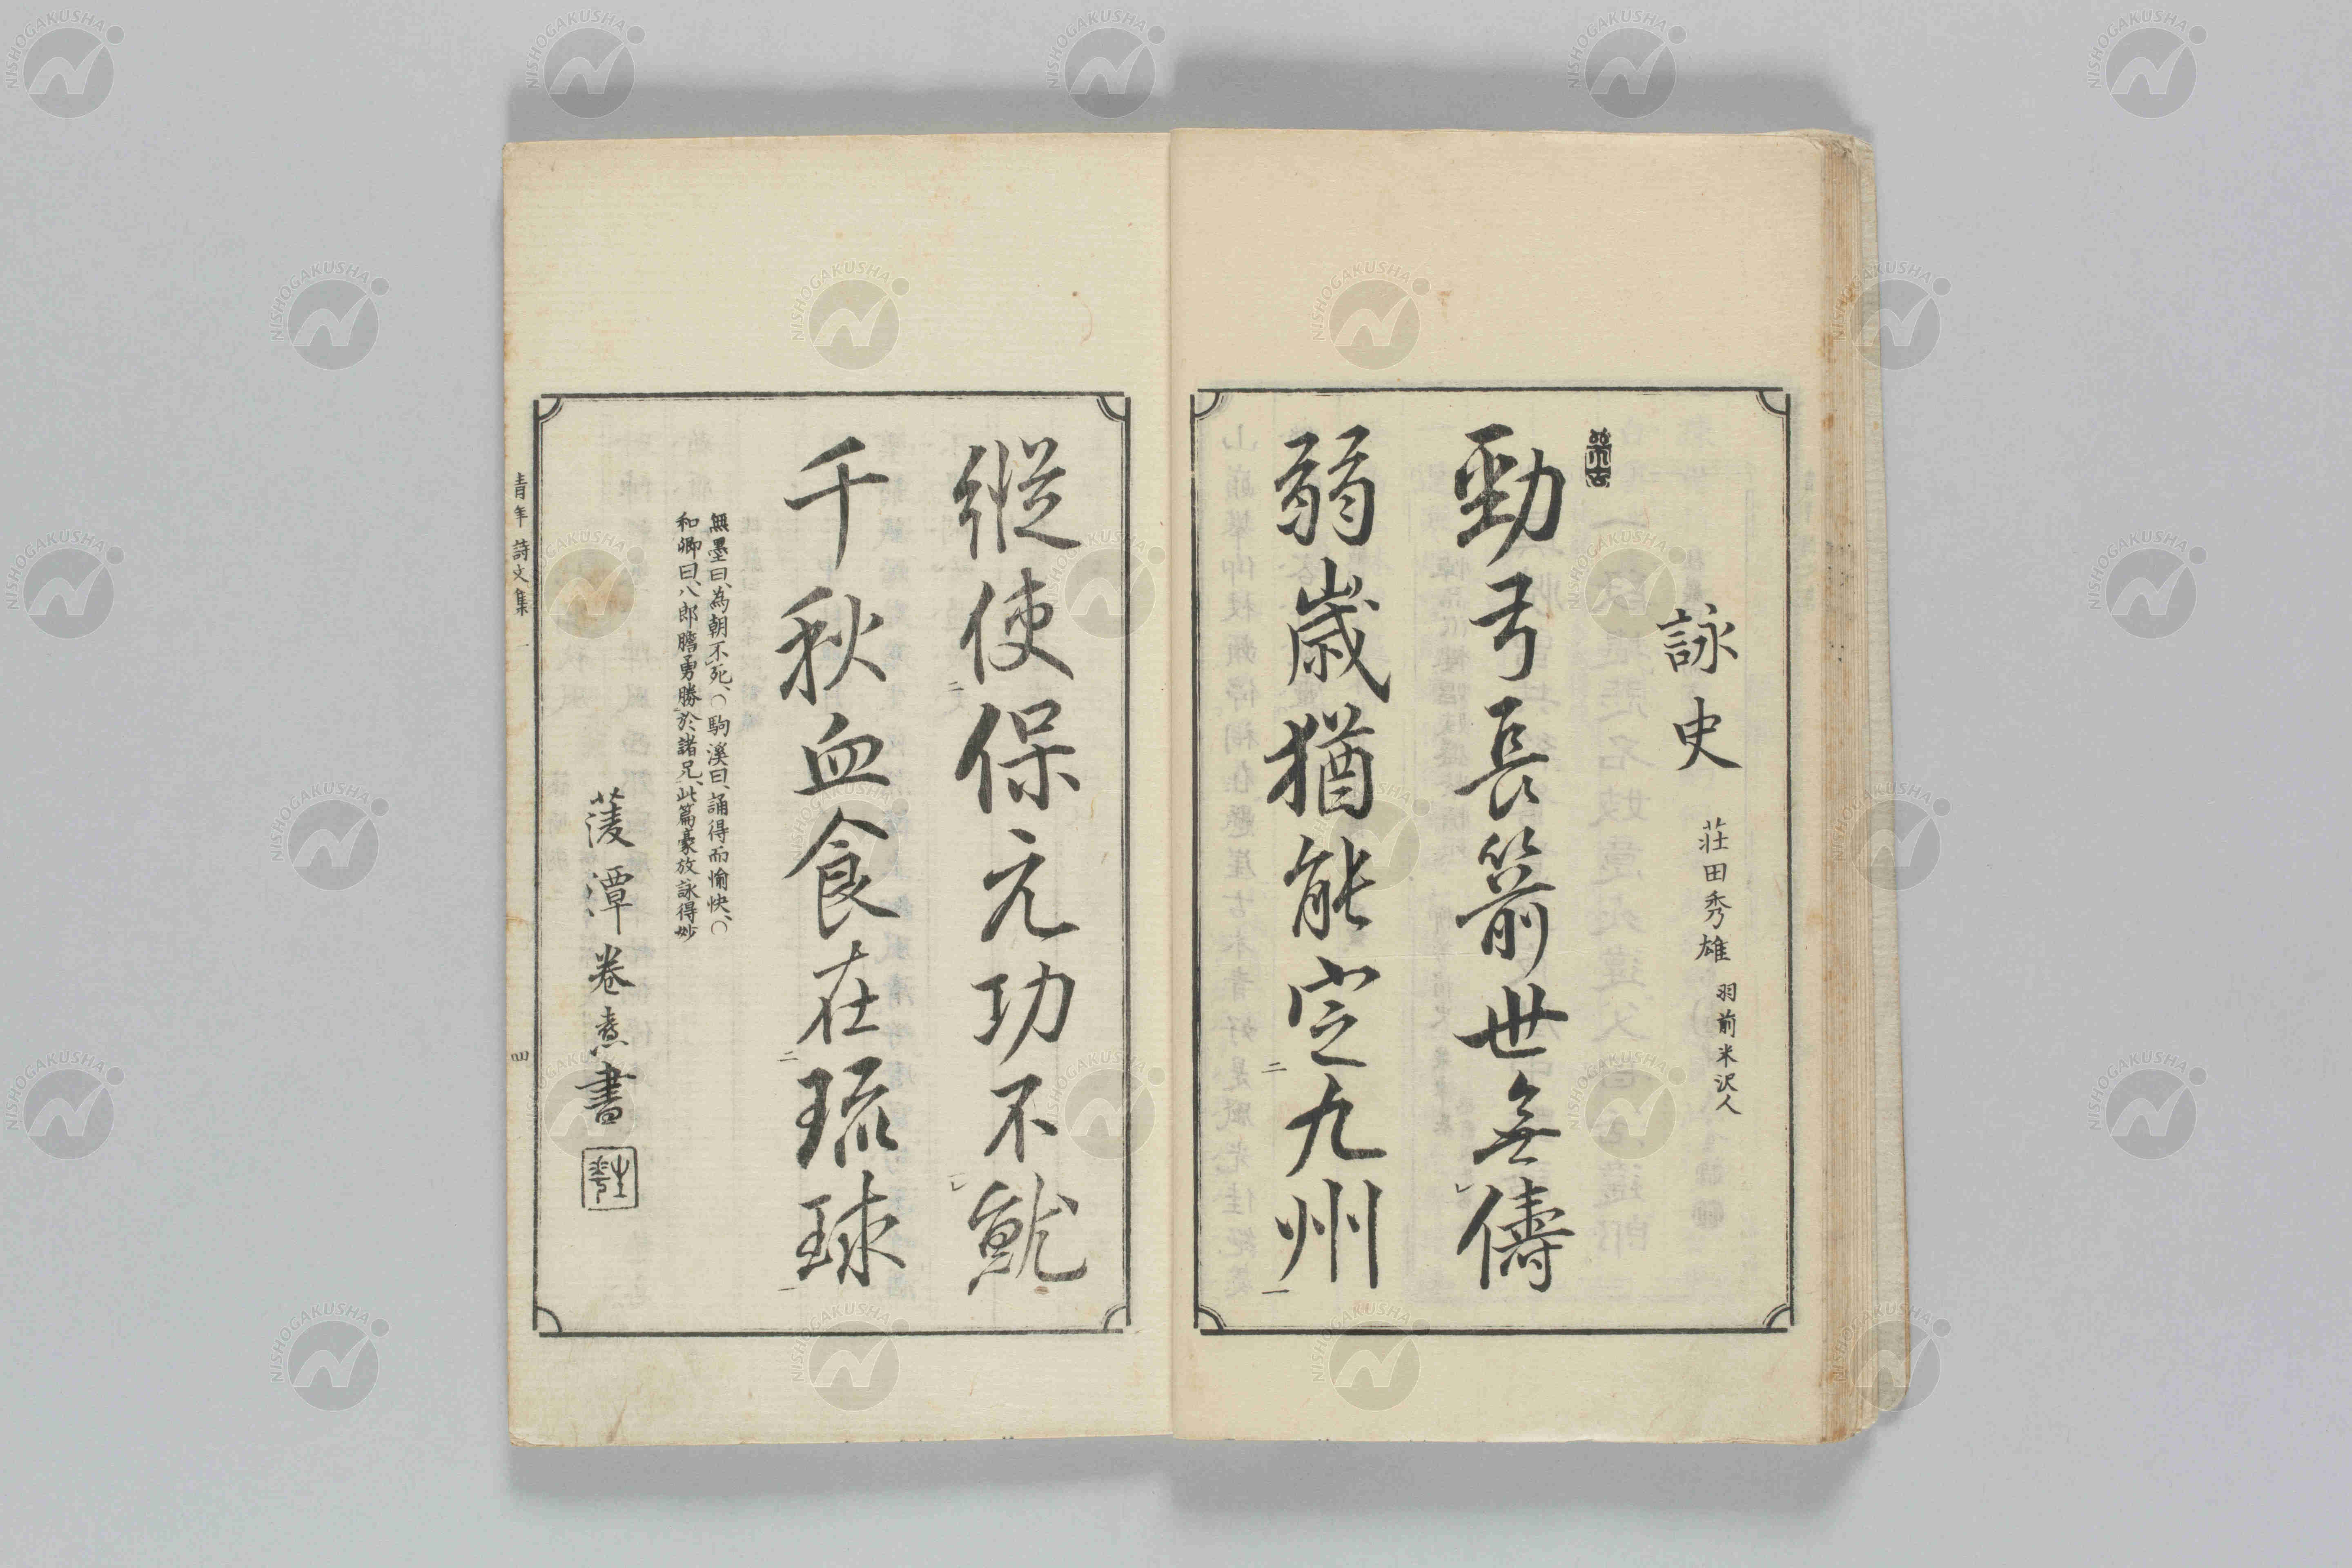 詠史
荘田秀雄 羽前米沢人
勁弓長箭世無儔
弱歳猶能定二九州一
縦使二保元功不レ就
千秋血食在二琉球一
無墨曰、為朝不死、〇駒溪曰、誦得而愉快、〇
和卿曰、八郎膽勇勝於諸兄、此篇豪放詠得妙
菱潭巻煮書
青年詩文集 一
四
NISHOGAKUSHA